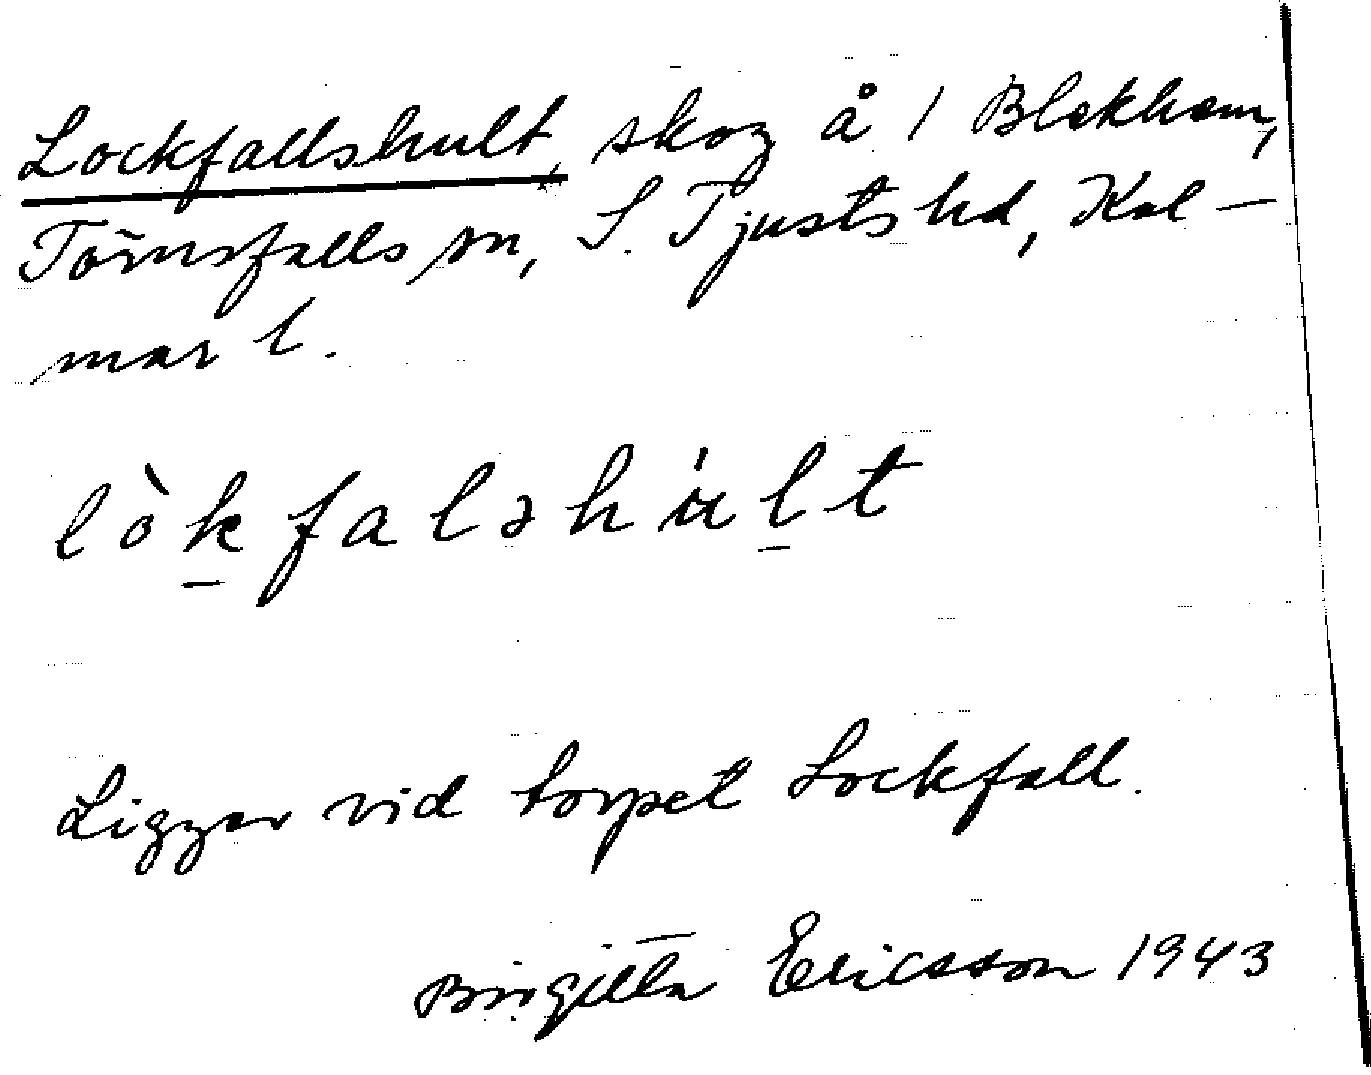 Lockfallshult, skog å 1 Blekhem,
Törnsfalls sn, S. Tjusts hd, Kal-
mar l.
lòkfalshúlt
Ligger vid torpet Lockfall.
Birgitta Ericsson 1943